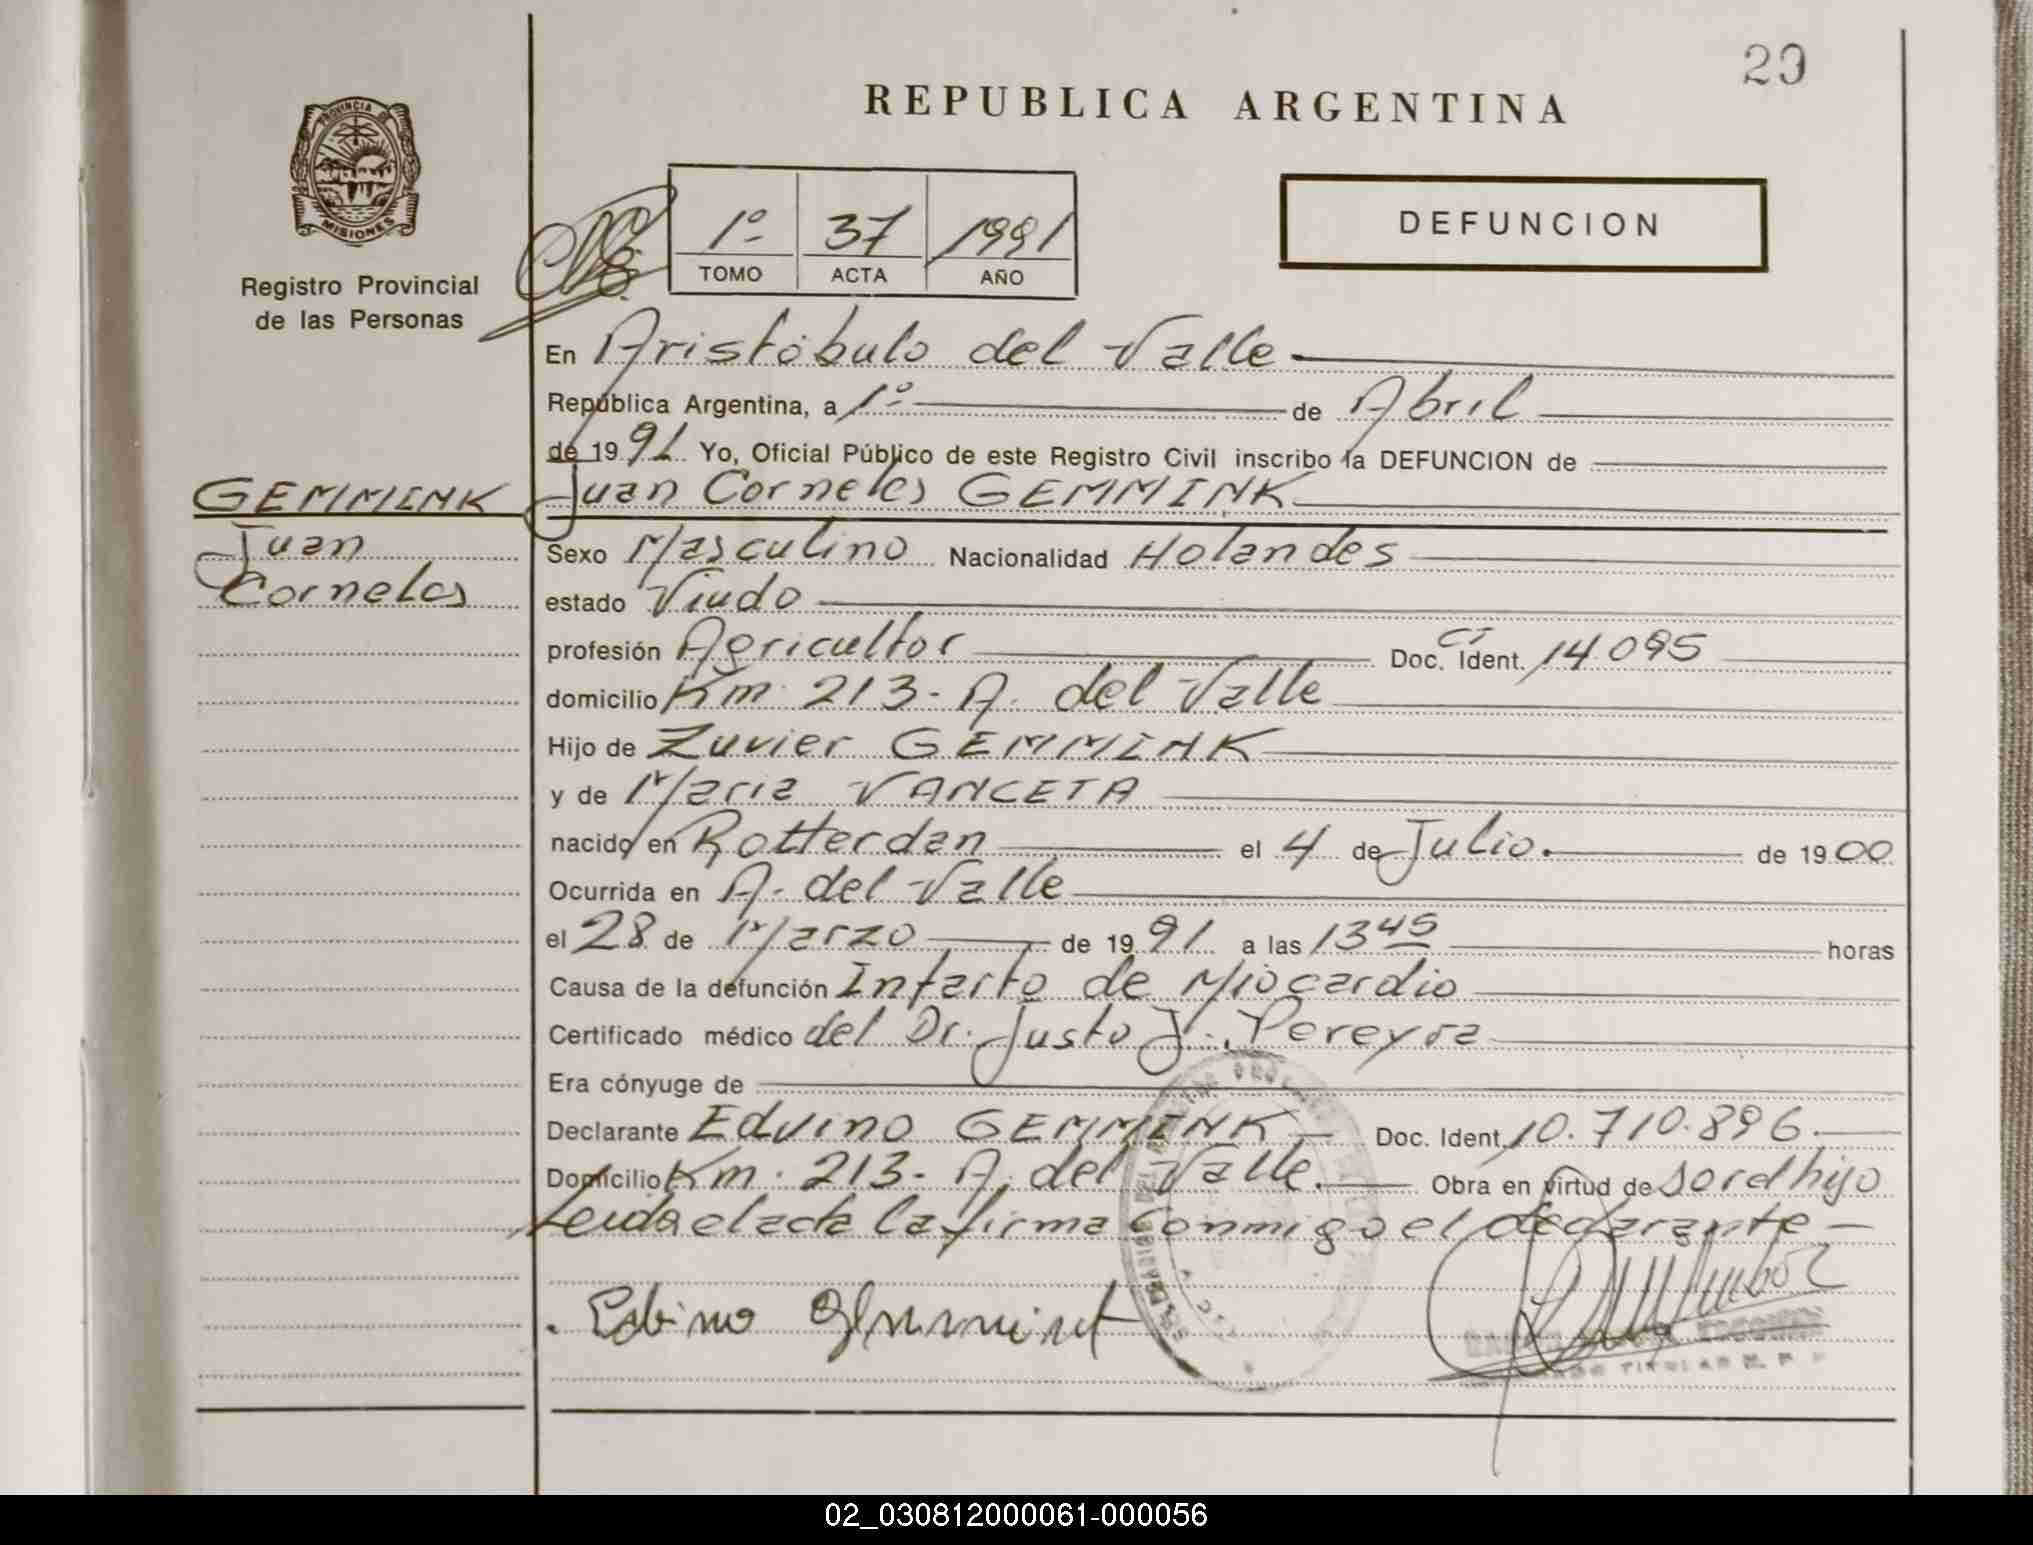 29
REPUBLICA ARGENTINA
PROVINCIA DE
MISIONES
Registro Provincial
de las Personas
1º 37 1991
TOMO ACTA AÑO
DEFUNCION
En Aristóbulo del Valle
República Argentina, a 1º de Abril
de 1991 Yo, Oficial Público de este Registro Civil inscribo la DEFUNCION de
GEMMINK
Juan
Cornelos
Juan Cornelos GEMMINK
Sexo Masculino Nacionalidad Holandes
estado Viudo
profesión Agricultor Doc. Ident. CI 14.095
domicilio Km. 213- A. del Valle
Hijo de Zuvier GEMMINK
y de Maria VANCETA
nacido en Rotterdan el 4 de Julio. de 1900
Ocurrida en A. del Valle
el 28 de Marzo de 1991 a las 13 45 horas
Causa de la defunción Infarto de Miocardio
Certificado médico del Dr. Justo J. Pereyra
Era cónyuge de
Declarante Edvino GEMMINK Doc. Ident. 10.710.896.
Domicilio Km. 213- A. del Valle. Obra en virtud de ser el hijo
Leida el acta la firma conmigo el declarante
Edvino Gemmink
TITULAR
02_030812000061-000056